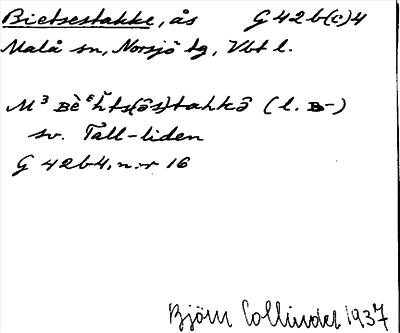 Bietsestakke, ås G 42 b(c) 4
Malå sn, Norsjö tg, Vbt l.
M³ (l. B-)
sv. Tall-liden
G 42 b 4, n:r 16
Björn Collinder 1937